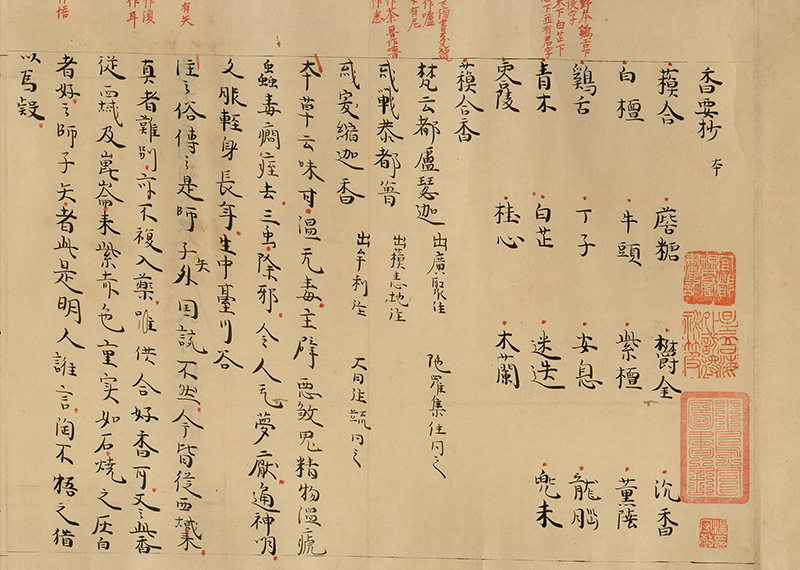 香要抄 本
蘓合 䕷糖 欝金 沉香
白檀 牛頭 紫檀 薫陸
鷄舌 丁子 安息 龍脳
青木 白芷 迷迭 兜末
零陵 桂心 木蘭
蘓合香
梵云都盧瑟迦 出廣聚注 陁羅集注同之
或戰恭都魯 出蘓悉地注
或窣縮迦香 出牟利注 大日注疏同之
本草云味甘温无毒主辟悪煞鬼精物温瘧
蟲毒癇痓去三虫除邪令人无夢厭通神明
久服輕身長年生中臺川谷
注云俗傳云是師子矢外国説不然今皆從西域来
真者難別亦不複入藥唯供合好香耳又云此香
従西域及崑崙来紫赤色重实如石燒之灰白
者好云師子矢者此是明人誰言陶不悟之猶
以爲疑